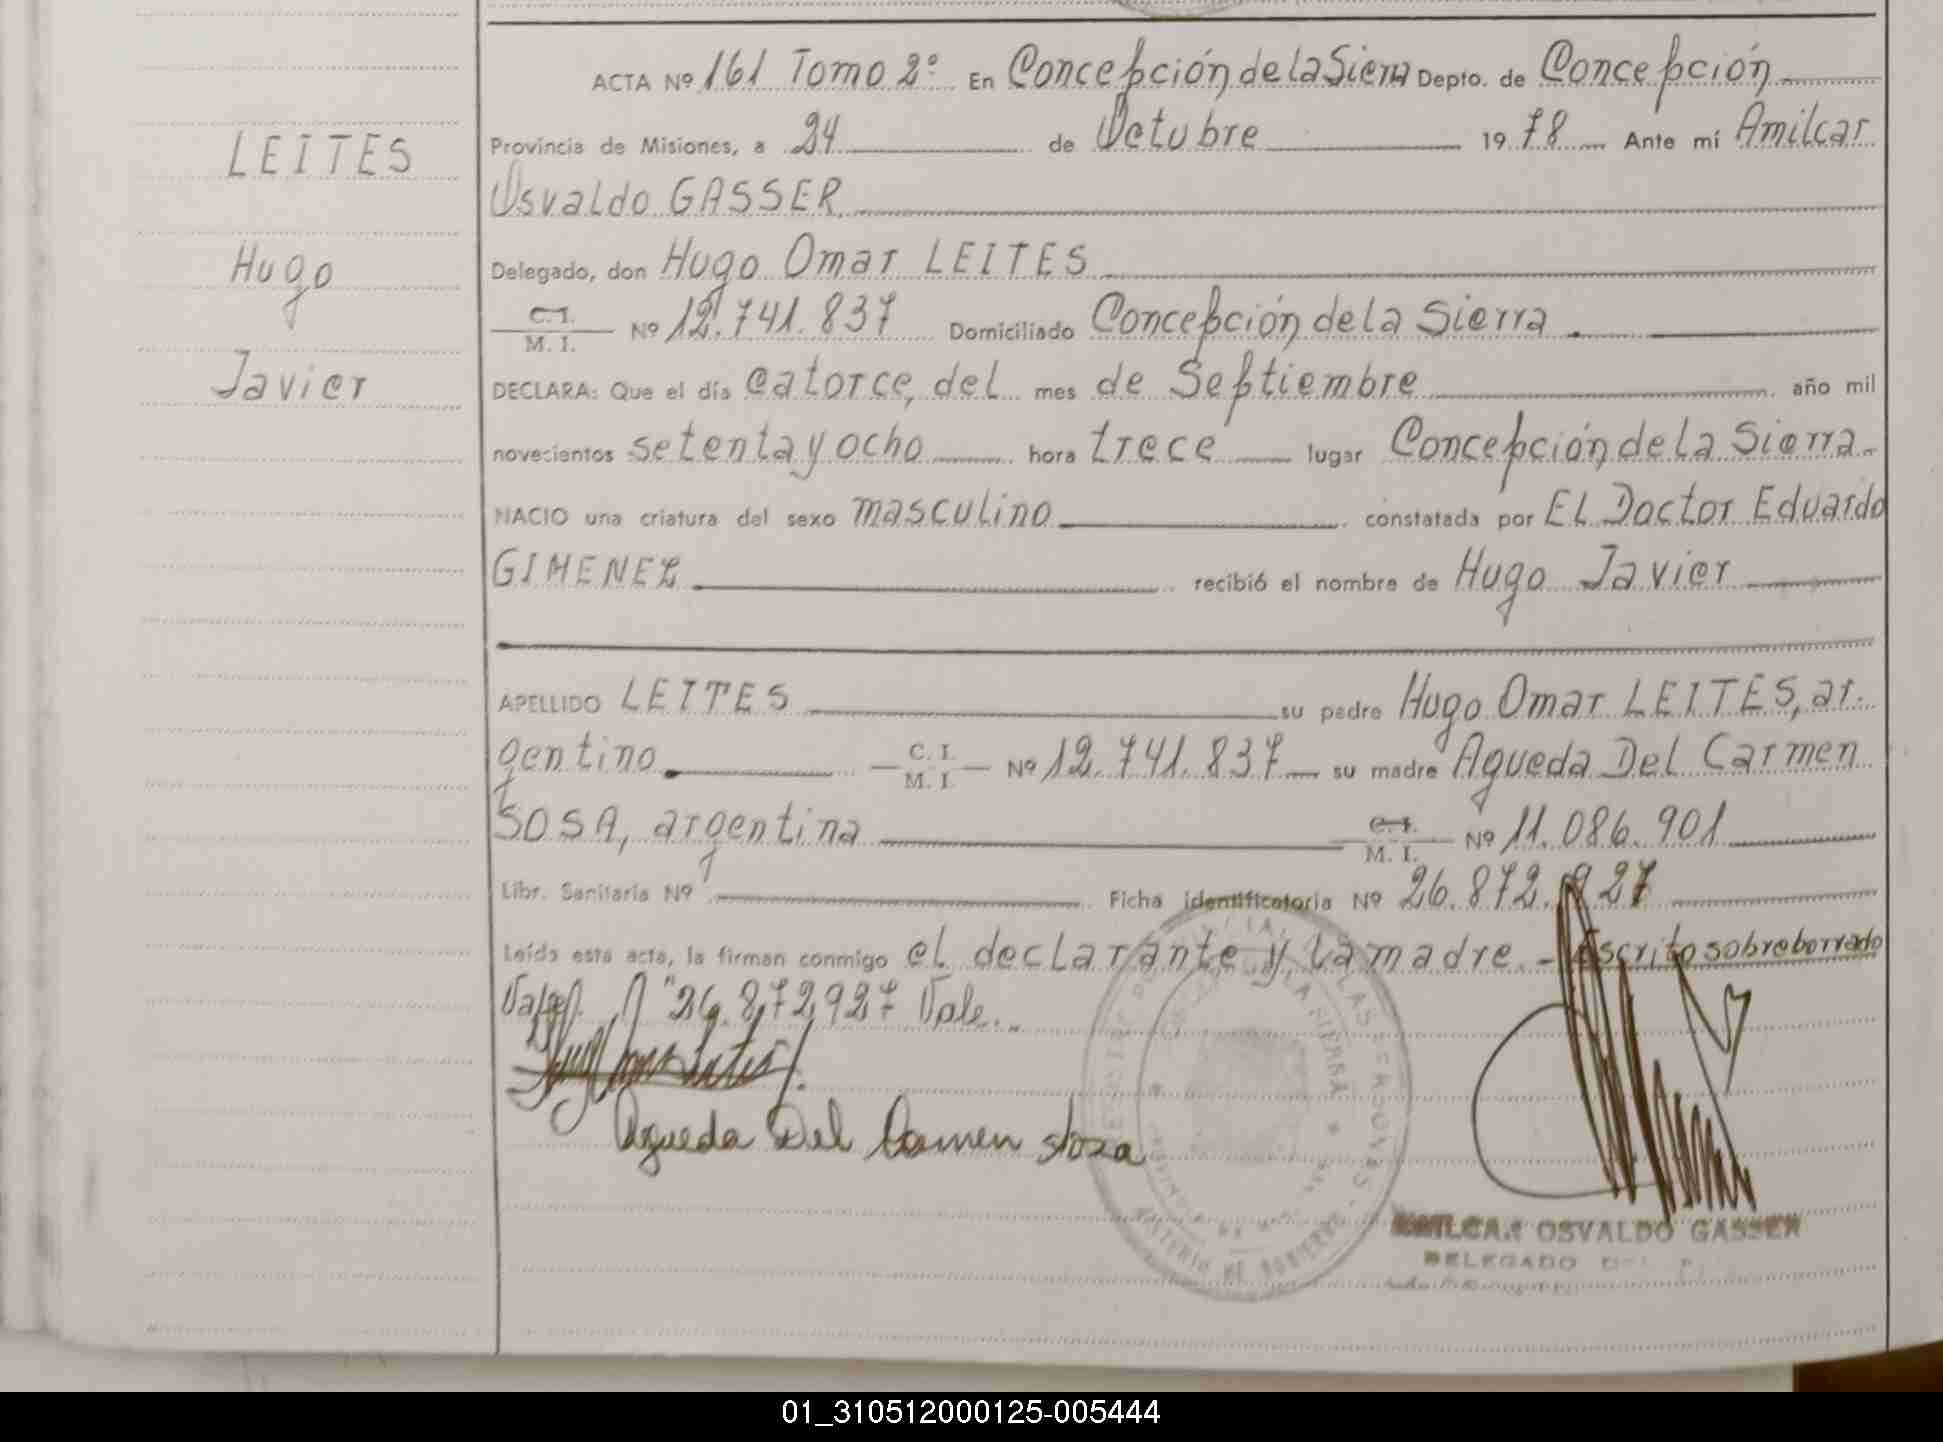 ACTA Nº 161 Tomo 2º En Concepción de la Sierra Depto. de Concepción
LEITES
Provincia de Misiones, a 24 de Octubre 1978 Ante mí Amilcar
Osvaldo GASSER
Hugo
Delegado, don Hugo Omar LEITES
C.I. M. I. Nº 12.741.837 Domiciliado Concepción de la Sierra.
Javier
DECLARA: Que el día catorce, del mes de Septiembre año mil
novecientos setenta y ocho hora trece lugar Concepción de la Sierra.-
NACIO una criatura del sexo masculino constatada por EL Doctor Eduardo
GIMENEZ recibió el nombre de Hugo Javier
APELLIDO LEITES su padre Hugo Omar LEITES, ar-
gentino. C. I. M. I. Nº 12.741.837 su madre Agueda Del Carmen
SOSA, argentina C.I. M. I. Nº 11.086.901
Libr. Sanitaria Nº Ficha identificatoria Nº 26.872.927
Leída esta acta, la firman conmigo el declarante y la madre.- Escrito sobreborrado
"26.872.927 Vale.-
Agueda Del Carmen Soza
AMILCAR OSVALDO GASSER
DELEGADO
01_310512000125-005444